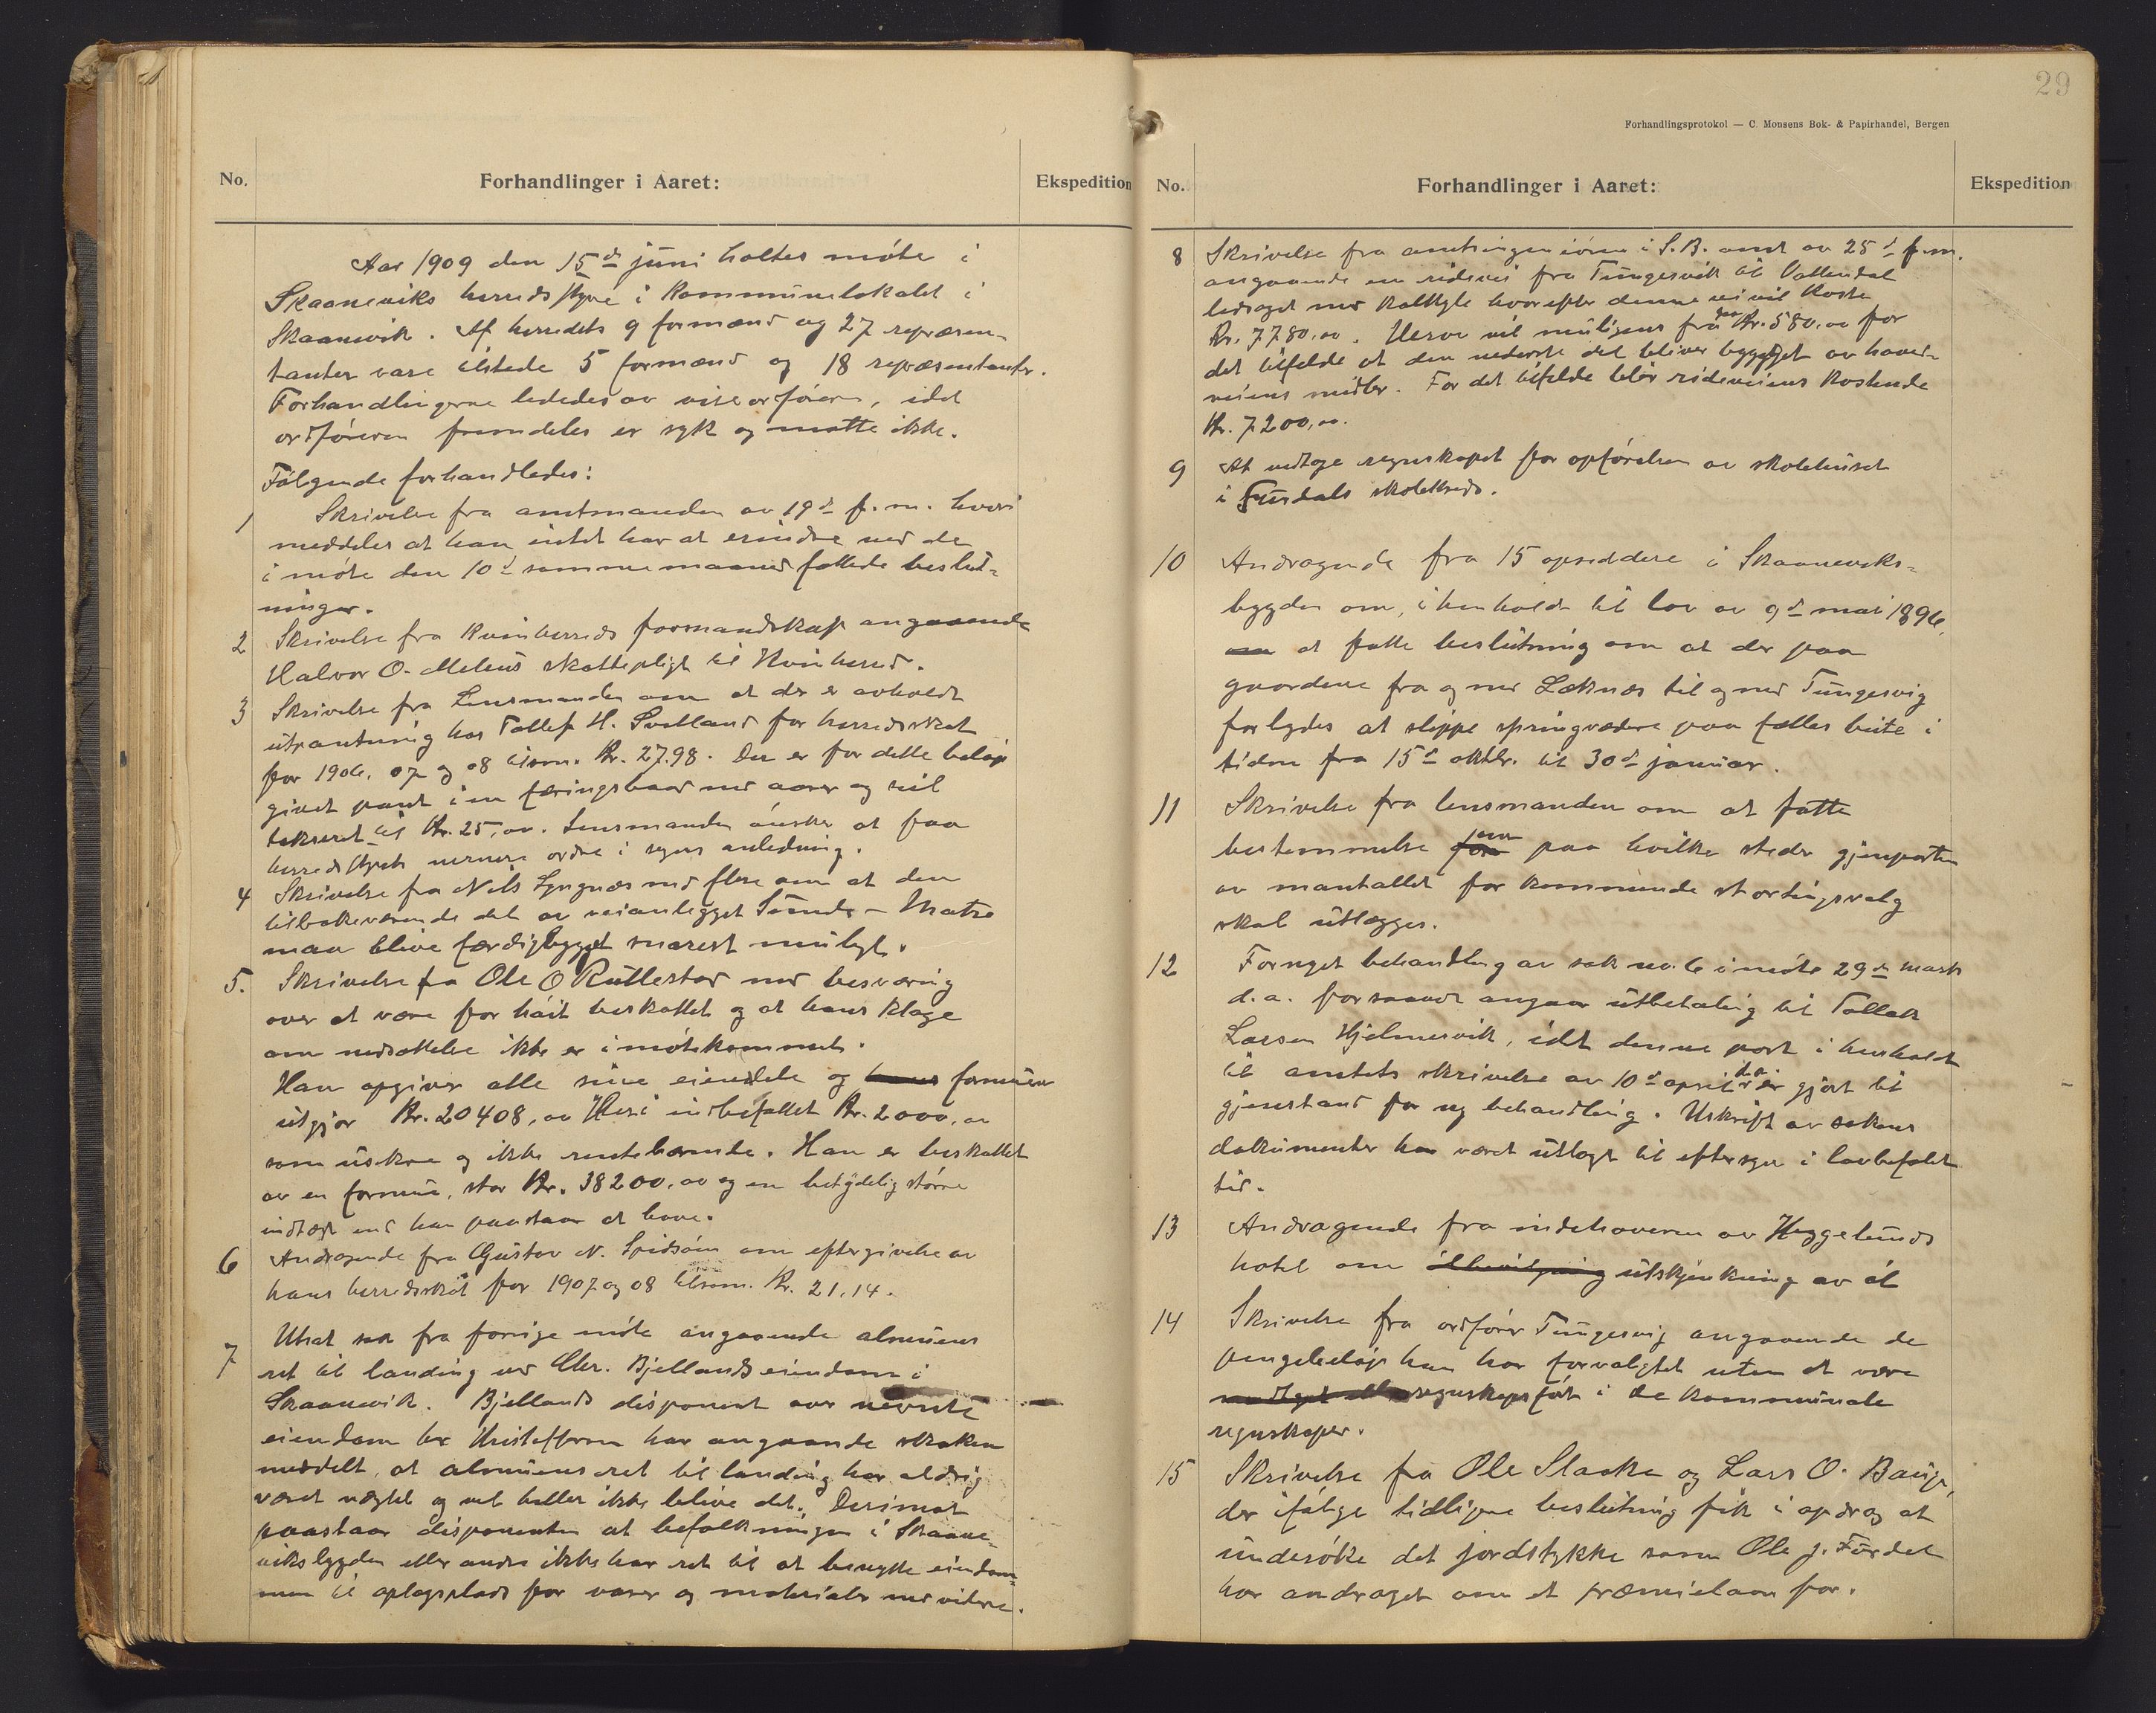 No.
Forhandlinger i Aaret:
Ekspedition
Aar 1909 den 15de juni holtes møte i
Skaaneviks herredsstyre i Kommunelokalet i
Skaanevik. Af herredets 9 formænd og 27 repræsen-
tanter vare tilstede 5 formænd og 18 repræsentanter.
Forhandlingerne lededes av viseordføreren, idet
ordføreren fremdeles er syk og møtte ikke.
Følgende forhandledes:
1 Skrivelse fra amtmanden av 19de f.m. hvori
meddeles at han intet har at erindre ved de
i møte den 10de samme maaned fattede beslut-
ninger.
2 Skrivelse fra Kvinherreds formandskap angaaende
Halvor O. Mehus skattepligt til Kvinherred.
3 Skrivelse fra Lensmanden om at der er avholdt
utpantning hos Tollef H. Sætland for herredsskat
for 1906, 07 og 08 tilsam. Kr. 27.98. Der er for dette beløp
givet pant i en færingsbaad med aarer og seil
takseret til Kr. 25,oo. Lensmanden ønsker at faa
herredsstyrets nærmere ordre i sagens anledning.
4 Skrivelse fra Nils Lyngnæs med flere om at den
tilbakeværende del av veianlegget Sunde - Matre
maa blive færdigbygget snarest muligt.
5. Skrivelse fra Ole O Rullestad med besværing
over at være for høit beskattet og at hans klage
om nedsættelse ikke er imøtekommet.
Han opgiver alle sine eiendele og formue
utgjør Kr. 20408,oo Heri indbefattet Kr. 2000,oo
som usikre og ikke rentebærende. Han er beskattet
av en formue, stor Kr. 38200,oo og en betydelig større
indtægt end han paastaar at have.
6 Andragende fra Gustav N. Spidsøen om eftergivelse av
hans herredsskat for 1907 og 08 tilsam. Kr. 21.14.
7 Utsat sak fra forrige møte angaaende almuens
ret til landing ved Chr. Bjellands eiendom i
Skaanevik. Bjellands disponent over nævnte
eiendom hr Kristoffersen har angaaende saken
meddelt, at almuens ret til landing har aldrig
været nægtet og vil heller ikke blive det. Derimot
paastaar disponenten at befolkningen i Skaane-
viksbygden eller andre ikke har ret til at benytte eiendom-
men til oplagsplads for varer og materialer med videre.
29
Forhandlingsprotokol — C. Monsens Bok- & Papirhandel, Bergen
No.
Forhandlinger i Aaret:
Ekspedition
8 Skrivelse fra amtsingeniøren i S.B. amt av 25de f.m.
angaaende en ridevei fra Tungesvik til Vattendal
ledsaget med kalkyle hvorefter denne vei vil koste
Kr. 7780,oo. Herav vil muligens fra Kr. 580,oo for
det tilfelde at den nederste del bliver bygget av hoved-
veiens midler. For det tilfelde blir rideveiens kostende
Kr. 7200,oo.
9 At vedtage regnskapet for opførelsen av skolehuset
i Fjürdals skolekreds.
10 Andragende fra 15 opsiddere i Skaaneviks-
bygden om, i henhold til lov av 9de mai 1896,
om at fatte beslutning om at der paa
gaardene fra og med Læknæs til og med Tungesvig
forbydes at slippe springvædere paa fælles beite i
tiden fra 15de oktbr. til 30de januar.
11 Skrivelse fra lensmanden om at fatte
bestemmelse om paa hvilke steder gjenparten
av mantallet for kommende stortingsvalg
skal utlægges.
12 Fornyet behandling av sak no. 6 i møte 29de marts
d.a. forsaavidt angaar utbetaling til Tollak
Larsen Hjelmervik, idet denne post i henhold
til amtets skrivelse av 10de april d.a. er gjort til
gjenstand for ny behandling. Utskrift av sakens
dokumenter har været utlagt til eftersyn i lovbefalet
tid.
13 Andragende fra indehaveren av Heggelunds
hotel om utskjenkning av øl
14 Skrivelse fra ordfører Tungesvig angaaende de
pengebeløp han har forvaltet uten at være
regnskapsført i de kommunale
regnskaper.
15 Skrivelse fra Ole Slaake og Lars O. Bauge,
der ifølge tidligere beslutning fik i opdrag at
undersøke det jordstykke som Ole J. Fürdal
har andraget om et præmielaan for.